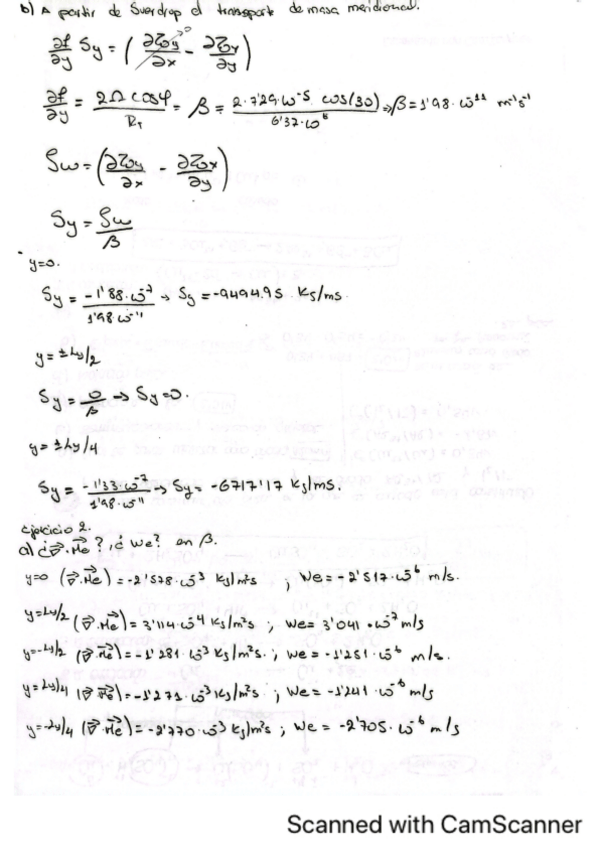 b) A partir de Sverdrup el transporte de masa meridional.
∂f/∂y Sy = (∂τy/∂x - ∂τx/∂y)
∂f/∂y = 2Ω cosφ/R_T = β = 2·7'29·10⁻⁵ cos(30)/6'37·10⁶ ⇒ β = 1'98·10⁻¹¹ m⁻¹s⁻¹
ρw = (∂τy/∂x - ∂τx/∂y)
Sy = ρw/β
y=0.
Sy = -1'88·10⁻⁷/1'98·10⁻¹¹ → Sy = -9494.95 Kg/ms.
y = ±Ly/2
Sy = 0/β → Sy=0.
y = ±Ly/4
Sy = -1'33·10⁻⁷/1'98·10⁻¹¹ → Sy = -6717'17 Kg/ms.
Ejercicio 2.
a) ¿∇·Me?, ¿We? en β.
y=0 (∇·Me) = -2'578·10⁻³ Kg/m²s ; We = -2'517·10⁻⁶ m/s.
y=Ly/2 (∇·Me) = 3'114·10⁻⁴ Kg/m²s ; We = 3'041·10⁻⁷ m/s
y=-Ly/2 (∇·Me) = -1'281·10⁻³ Kg/m²s. ; We = -1'251·10⁻⁶ m/s.
y=Ly/4 (∇·Me) = -1'271·10⁻³ Kg/m²s ; We = -1'241·10⁻⁶ m/s
y=-Ly/4 (∇·Me) = -2'770·10⁻³ Kg/m²s ; We = -2'705·10⁻⁶ m/s
Scanned with CamScanner